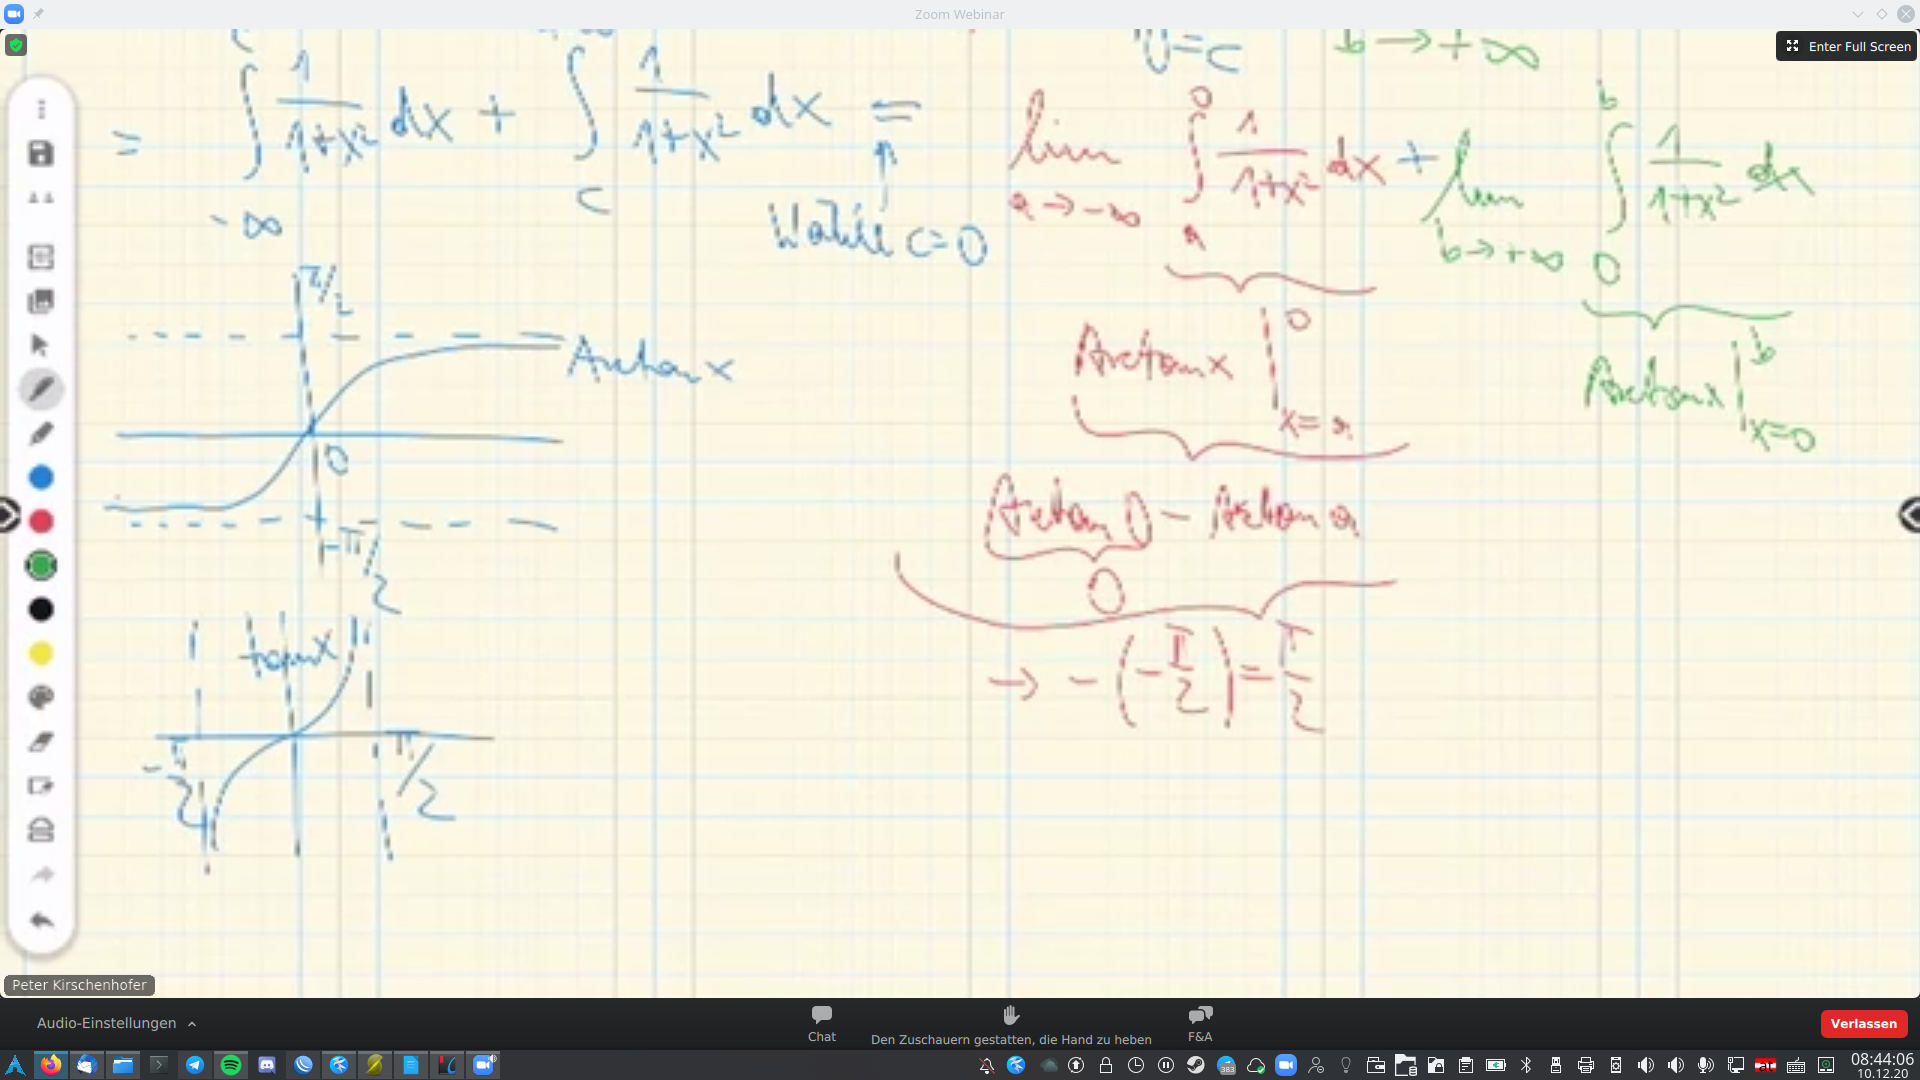 Zoom Webinar
Enter Full Screen
v=c
b → +∞
= ∫ 1/(1+x²) dx + ∫ 1/(1+x²) dx =
-∞
c
Wähle c=0
lim a → -∞ ∫ 0 a 1/(1+x²) dx + lim b → +∞ ∫ b 0 1/(1+x²) dx
π/2
Arctan x
0
-π/2
Arctan x | 0 x=a
Arctan x | b x=0
Arctan 0 - Arctan a
0
→ -(-π/2) = π/2
tan x
-π/2
π/2
Peter Kirschenhofer
Audio-Einstellungen
Chat
Den Zuschauern gestatten, die Hand zu heben
F&A
Verlassen
383
08:44:06
10.12.20